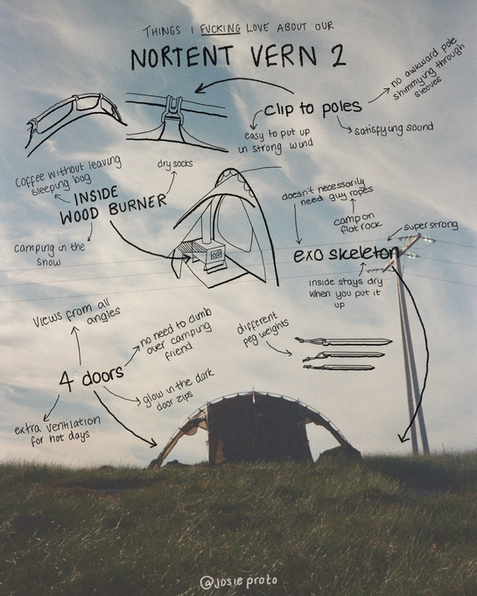 THINGS I FUCKING LOVE ABOUT OUR
NORTENT VERN 2
clip to poles
no awkward pole
shimmying through
sleeves
easy to put up
in strong wind
satisfying sound
INSIDE
WOOD BURNER
coffee without leaving
sleeping bag
dry socks
camping in the
snow
exo skeleton
doesn't necessarily
need guy ropes
camp on
flat rock
super strong
inside stays dry
when you put it
up
4 doors
views from all
angles
no need to climb
over camping
friend
glow in the dark
door zips
extra ventilation
for hot days
different
peg weights
@josieproto